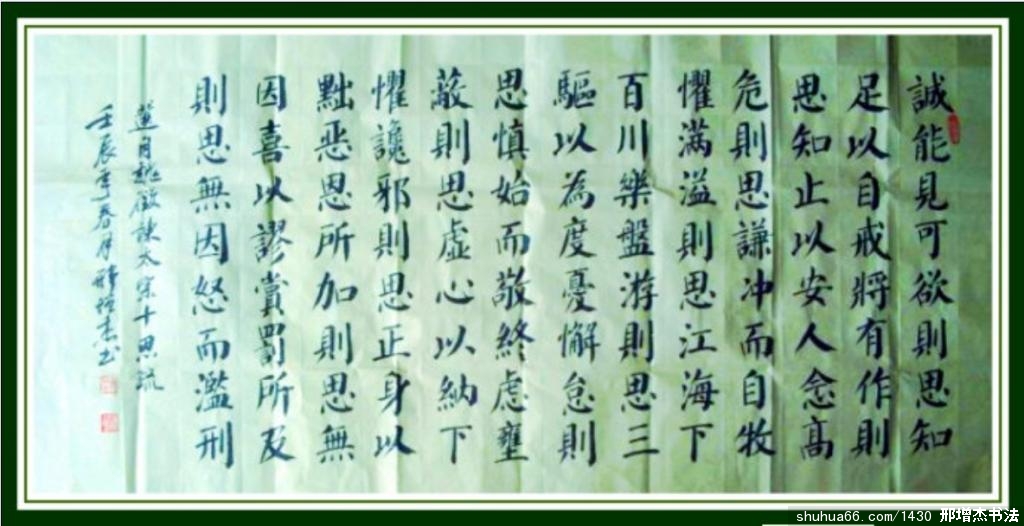 誠能見可欲則思知
足以自戒將有作則
思知止以安人念高
危則思謙沖而自牧
懼滿溢則思江海下
百川樂盤游則思三
驅以為度憂懈怠則
思慎始而敬終慮壅
蔽則思虛心以納下
懼讒邪則思正身以
黜惡思所加則思無
因喜以謬賞罰所及
則思無因怒而濫刑
並肖魏徵諫太宗十思疏
壬辰年春月邢增杰书
shuhua66.com/1430 邢增杰书法